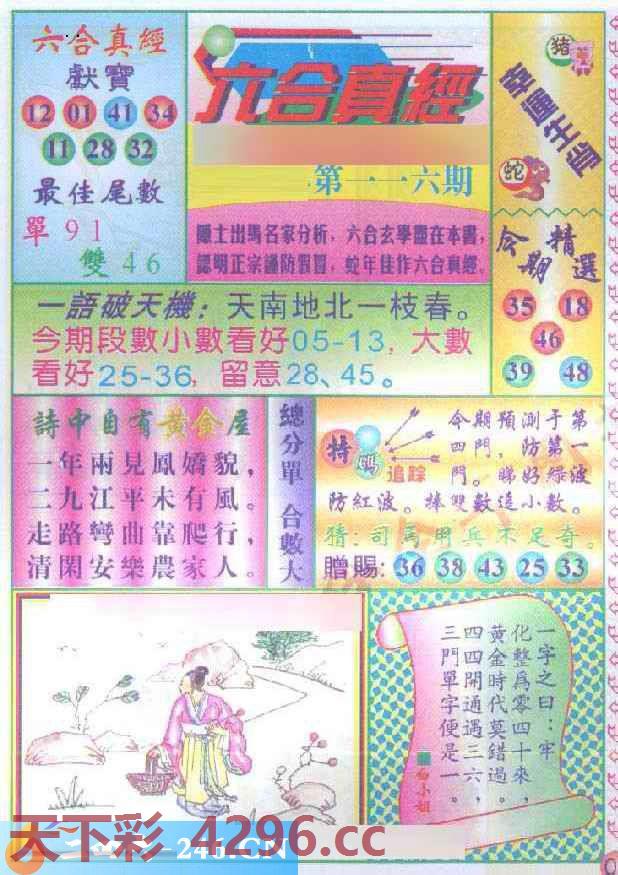 六合真經
獻寶
12 01 41 34
11 28 32
最佳尾數
單 9 1
雙 4 6
六合真經
第一一六期
隱士出馬名家分析，六合玄學盡在本書，
認明正宗謹防假冒，蛇年佳作六合真經。
猪
蛇
今期精選
35 18
46
39 48
一語破天機：天南地北一枝春。
今期段數小數看好05-13，大數
看好25-36，留意28、45。
詩中自有黃金屋
一年兩見鳳嬌貌，
二九江平未有風。
走路彎曲靠爬行，
清閑安樂農家人。
總分單 合數大
特碼
追踪
今期預測于第
四門，防第一
門。睇好綠波
防紅波。捧雙數追小數。
猜：司馬用兵不足奇。
贈賜：36 38 43 25 33
一字之曰：牢
化整為零四十來，
黃金時代莫錯過。
四四開通遇三六，
三門單字便是一。
白小姐
天下彩 4296.cc